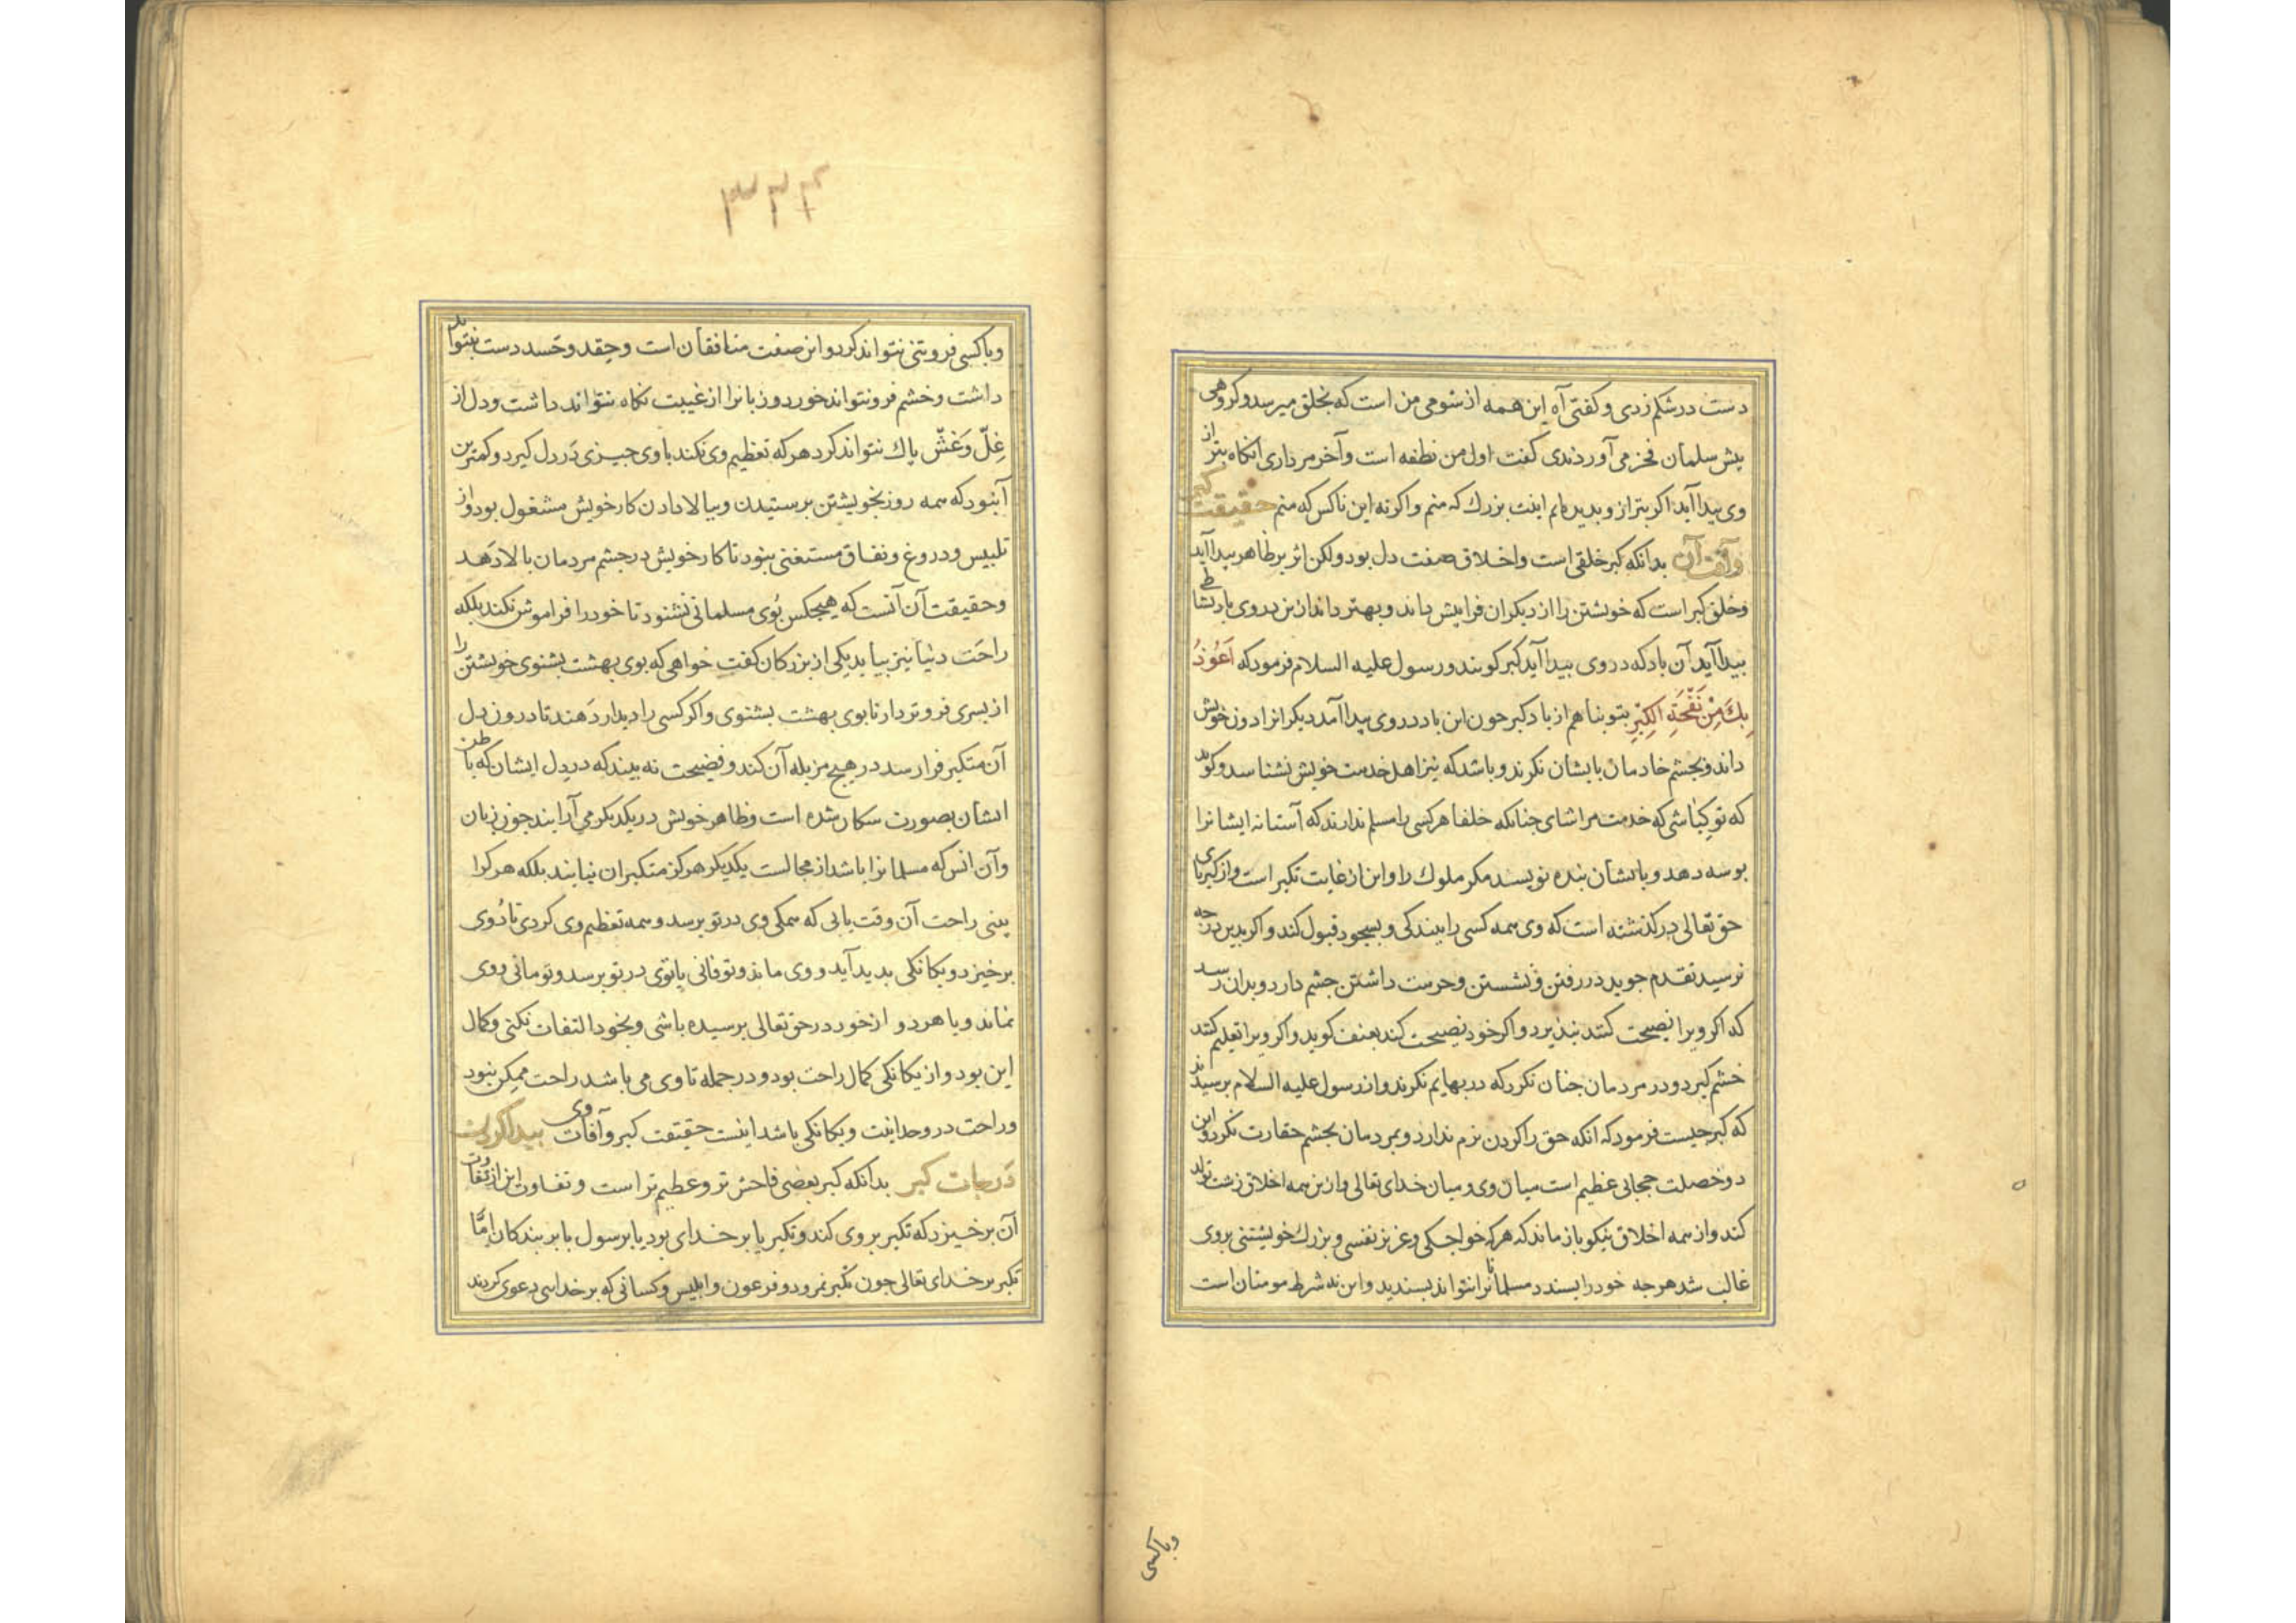 دست در شکم زدی و کفتی آه این همه از شومی من است که بخلق میرسد و کروهی
پیش سلمان فخر می آوردندی کفت اول من نطفه است و آخر مرداری آنکاه بتر از
وی پیدا آید اکر بتر ازو بدیدیم اینت بزرك که منم واکر نه این ناکس که منم حقیقت کبر
وآفت آن بدانکه کبر خلقی است واخلاق صفت دل بود ولکن اثر بر ظاهر پیدا آید
وخلق کبر است که خویشتن را از دیکران فرا پیش داند وبهتر داند ازین در وی باد نشاطی
پیدا آید آن باد که در وی پیدا آید کبر کویند ورسول علیه السلام فرمود که اَعُوذُ
بِكَ مِنْ نَفْخَةِ الْكِبْرِ بتو پناهم از باد کبر چون این باد در وی پیدا آمد دیکر انرا دون خویش
داند وبچشم خادمان بایشان نکرند وباشد که نیز اهل خدمت خویش نشناسد و کوید
که تو کباشی که خدمت مرا شای چنانکه خلفا هر کسی را مسلم ندارند که آستانه ایشانرا
بوسه دهد وبایشان بنده نویسد مکر ملوك را واین از غایت تکبر است واز کبریای
حق تعالی درکذشته است که وی همه کسی را ببندکی وبسجود قبول کند واکر بدین درجه
نرسید تقدم جوید در رفتن ونشستن وحرمت داشتن چشم دارد وبدان رسد
که اکر ویرا نصیحت کنند نپذیرد واکر خود نصیحت کند بعنف کوید واکر ویرا تعلیم کنند
خشم کیرد ودر مردمان چنان نکرد که در بهایم نکرند واز رسول علیه السلام پرسیدند
که کبر چیست فرمود که آنکه حق را کردن نرم ندارد وبمردمان بچشم حقارت نکرد واین
دو خصلت حجابی عظیم است میان وی ومیان خدای تعالی وازین همه اخلاق زشت تولد
کند واز همه اخلاق نیکو باز ماند که هر که خواجکی وعزیز نفسی وبزرك خویشتنی بروی
غالب شد هرچه خود را پسندد مسلمانانرا نتواند پسندید واین نه شرط مومنان است
وباکسی
۳۳۶
وباکسی فروتنی نتواند کرد واین صفت منافقان است وحقد وحسد دست بنتواند
داشت وخشم فرو نتواند خورد وزبانرا از غیبت نکاه نتواند داشت ودل از
غِلّ وَغشّ پاك نتواند کرد هر که تعظیم وی نکند با وی چیزی در دل کیرد وکمترین
آنبود که همه روز بخویشتن پرستیدن وببالا دادن کار خویش مشغول بود واز
تلبیس ودروغ ونفاق مستغنی نبود تا کار خویش در چشم مردمان بالا دَهد
وحقیقت آن آنست که هیچکس بُوی مسلمانی نشنود تا خود را فراموش نکند بلکه
راحَت دنیا نیز نیابد یکی از بزرکان کفت خواهی که بوی بهشت بشنوی خویشتن را
از بسری فروتر دار تا بوی بهشت بشنوی واکر کسی را دیدار دَهند تا درون دل
آن متکبر فرا رسد در هیچ مزبله آن کند وفضیحت نه بیند که در دل ایشان که باطن
ایشان بصورت سکان شده است وظاهر خویش در یکدیکر می آرایند چون زنان
وآن انس که مسلمانرا باشد از مجالست یکدیکر هرکز متکبران نیابند بلکه هر کرا
بینی راحت آن وقت یابی که همکی وی در تو برسد وهمه تعظیم وی کردی تا دُوی
برخیزد ویکانکی پدید آید ووی ماند وتو فانی یا توی در تو برسد وتو مانی ووی
نماند ویا هر دو از خود در حق تعالی برسیده باشی وبخود التفات نکنی وکمال
این بود واز یکانکی کمال راحت بود ودر جمله تا وی می باشد راحت ممکن نبود
وراحت در وحدانیت ویکانکی باشد اینست حقیقت کبر وآفات وی پیدا کردن
دَرجات کبر بدانکه کبر بعضی فاحش تر وعظیم تر است وتفاوت این از تفاوت
آن برخیزد که تکبر بر وی کند وتکبر یا بر خدای بود یا بر رسول یا بر بندکان امّا
تکبر بر خدای تعالی چون تکبر نمرود وفرعون وابلیس وکسانی که بر خداسی دعوی کردند